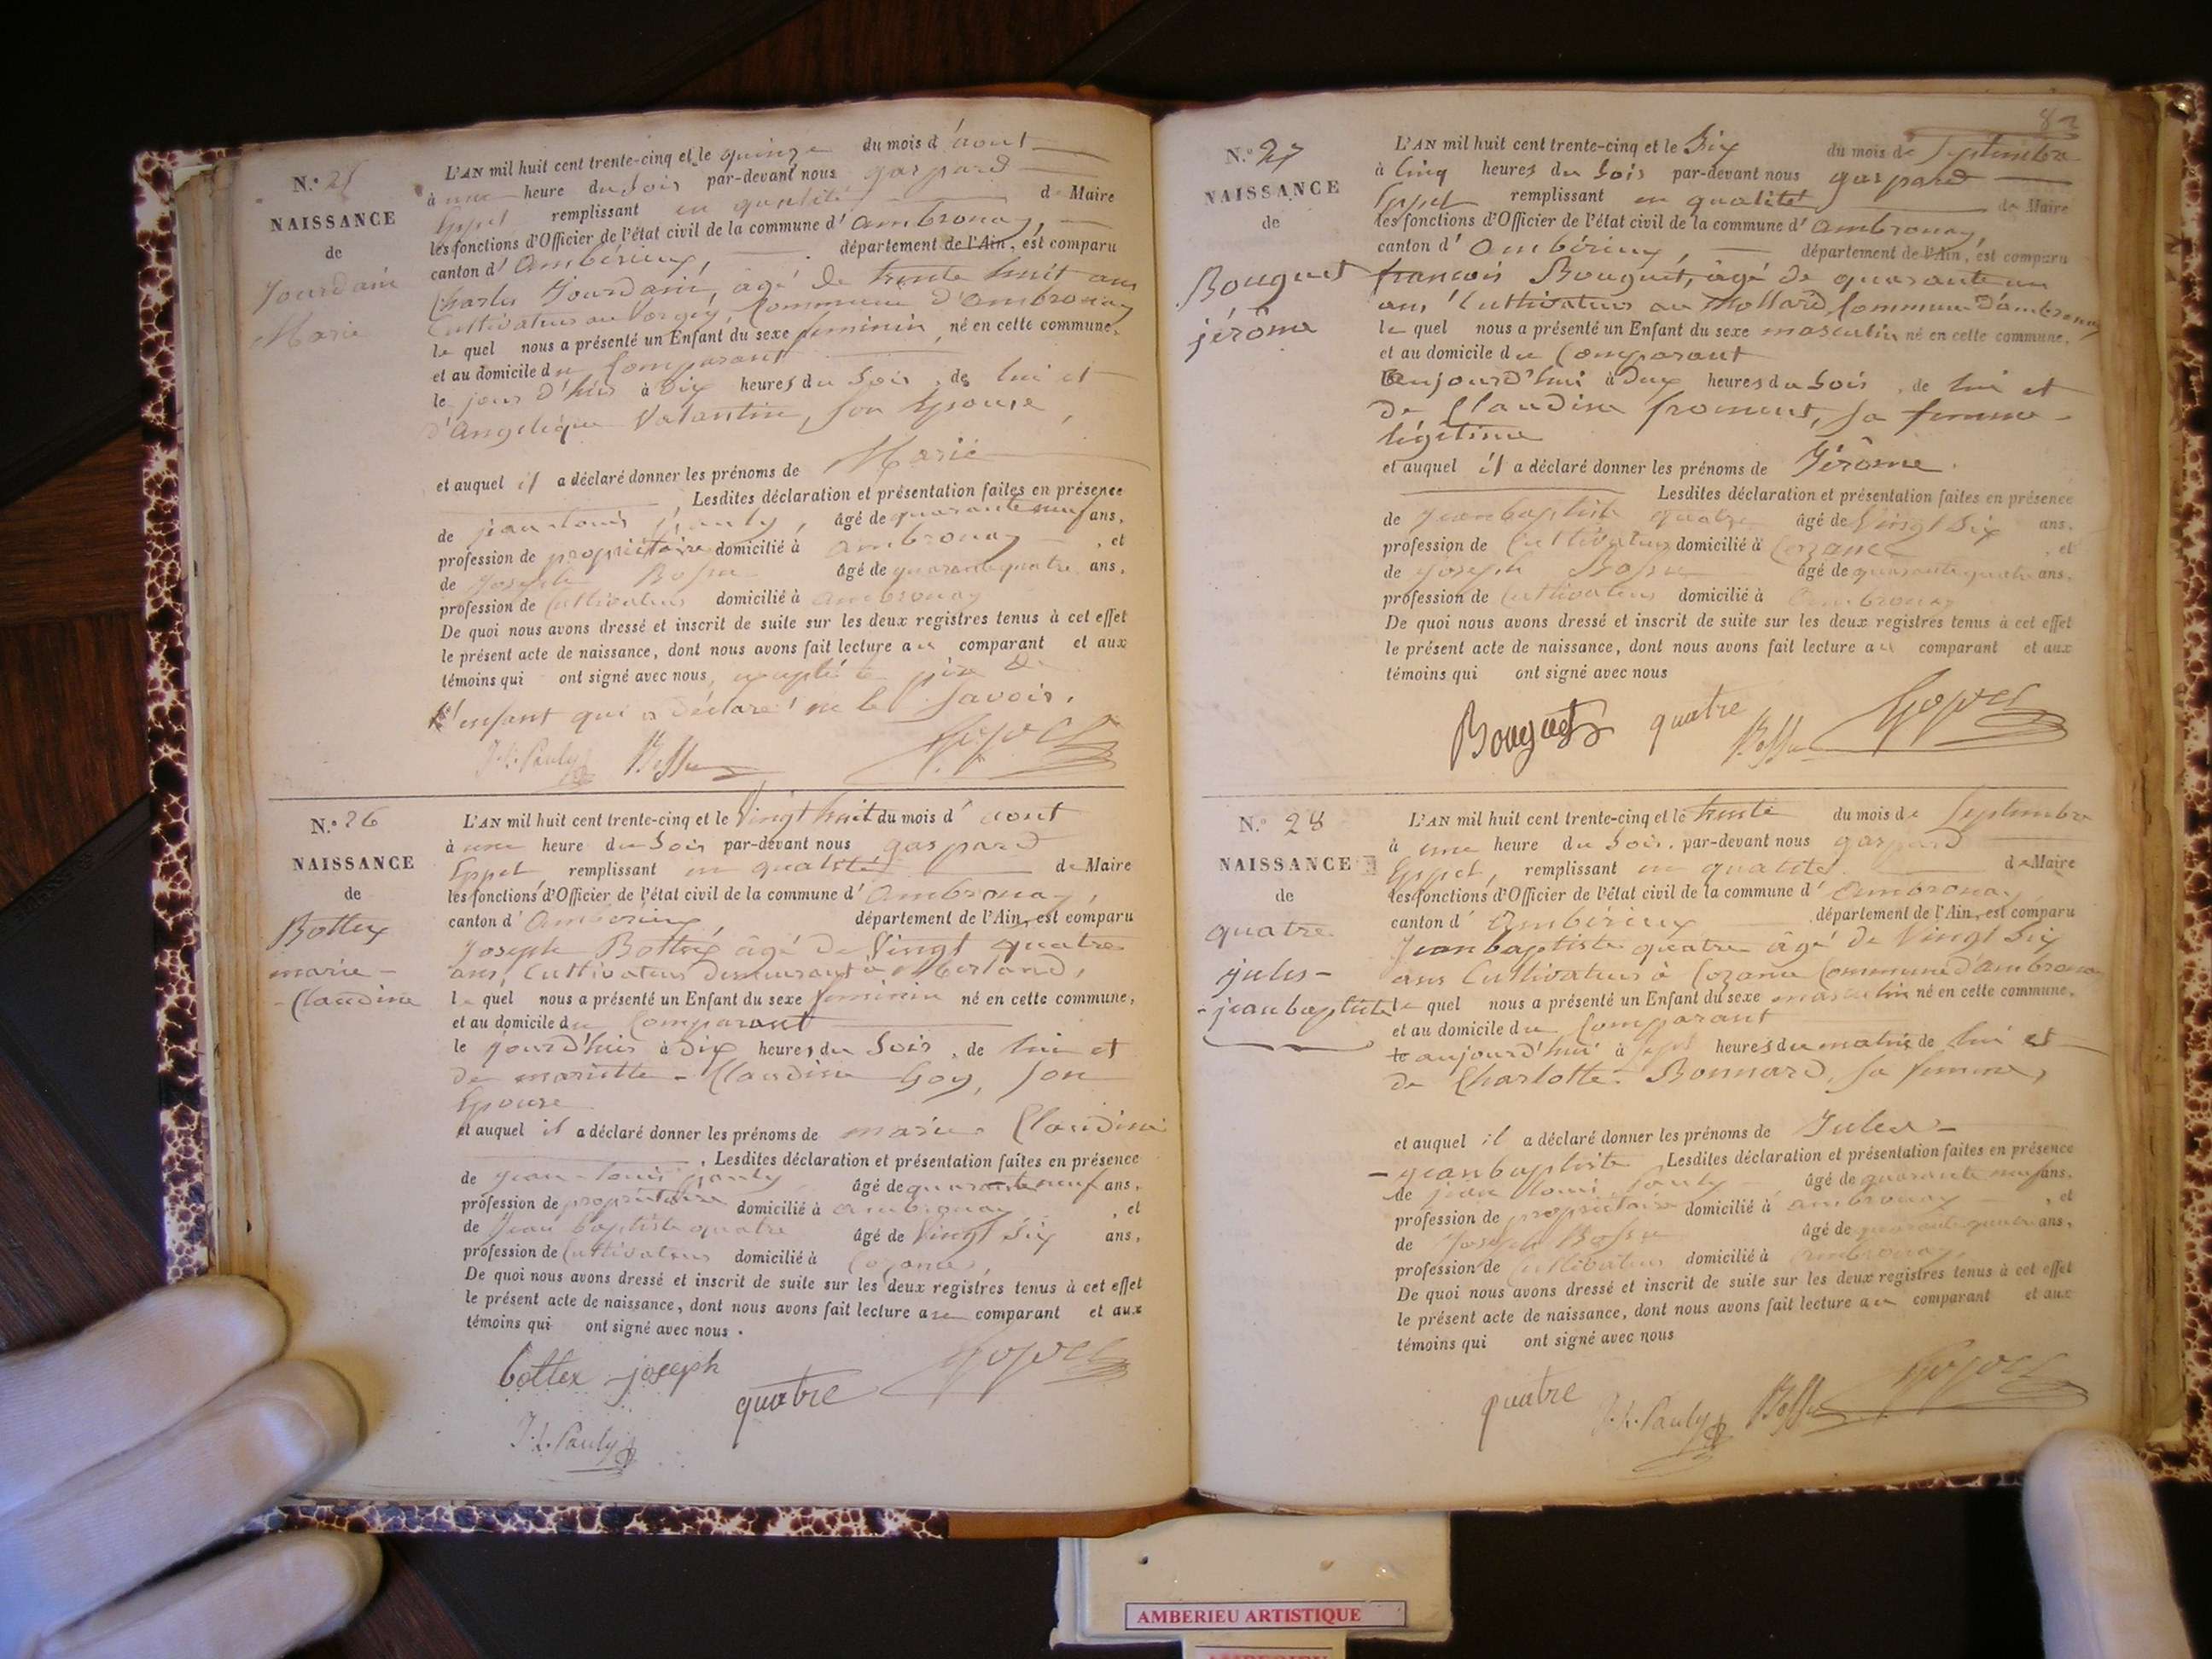 N.o 25
NAISSANCE
de
Jourdain
Marie
L'AN mil huit cent trente-cinq et le quinze du mois d'aout
à une heure du Soir par-devant nous gaspard
remplissant en qualité de Maire
les fonctions d'Officier de l'état civil de la commune d'ambronay,
canton d'ambérieux, département de l'Ain, est comparu
Charles Jourdain, âgé de trente huit ans
Cultivateur au Commune d'ambronay
le quel nous a présenté un Enfant du sexe feminin, né en cette commune,
et au domicile du Comparant
le jour d'hui à dix heures du Soir, de lui et
d'Angelique Valantin, son Epouse,
et auquel il a déclaré donner les prénoms de Marie
Lesdites déclaration et présentation faites en présence
de jean louis pauly, âgé de quarante neuf ans,
profession de propriétaire domicilié à ambronay, et
de Joseph Bossu âgé de quarante quatre ans,
profession de Cultivateur domicilié à ambronay
De quoi nous avons dressé et inscrit de suite sur les deux registres tenus à cet effet
le présent acte de naissance, dont nous avons fait lecture au comparant et aux
témoins qui ont signé avec nous, excepté le père de
l'enfant qui a déclaré ne le Savoir.
J. L. Pauly Bossu
N.o 26
NAISSANCE
de
Bottex
marie -
- Claudine
L'AN mil huit cent trente-cinq et le Vingt huit du mois d'aout
à une heure du Soir par-devant nous gaspard
remplissant en qualité de Maire
les fonctions d'Officier de l'état civil de la commune d'ambronay,
canton d'ambérieux département de l'Ain, est comparu
Joseph Bottex âgé de Vingt quatre
ans, Cultivateur demeurant à merland,
le quel nous a présenté un Enfant du sexe feminin né en cette commune,
et au domicile du Comparant
le jourd'hui à dix heures du Soir, de lui et
de mariette - Claudine Goy, son
Epouse
et auquel il a déclaré donner les prénoms de marie Claudine
, Lesdites déclaration et présentation faites en présence
de jean-louis pauly âgé de quarante neuf ans,
profession de propriétaire domicilié à ambronay, et
de Jean baptiste quatre âgé de Vingt Six ans,
profession de Cultivateur domicilié à Cozance,
De quoi nous avons dressé et inscrit de suite sur les deux registres tenus à cet effet
le présent acte de naissance, dont nous avons fait lecture au comparant et aux
témoins qui ont signé avec nous.
bottex joseph quatre
J. L. Pauly
82
N.o 27
NAISSANCE
de
Bouquet
jérôme
L'AN mil huit cent trente-cinq et le Six du mois de Septembre
à Cinq heures du Soir par-devant nous gaspard
remplissant en qualité de Maire
les fonctions d'Officier de l'état civil de la commune d'ambronay
canton d'ambérieux, département de l'Ain, est comparu
françois Bouquet, âgé de quarante un
ans Cultivateur au Mollard, Commune d'ambronay
le quel nous a présenté un Enfant du sexe masculin né en cette commune,
et au domicile du Comparant
aujourd'hui à deux heures du Soir, de lui et
de Claudine froment, sa femme -
légitime
et auquel il a déclaré donner les prénoms de Jérôme.
Lesdites déclaration et présentation faites en présence
de jean baptiste quatre âgé de Vingt Six ans,
profession de Cultivateur domicilié à Cozance, et
de joseph Bossu âgé de quarante quatre ans,
profession de Cultivateur domicilié à ambronay
De quoi nous avons dressé et inscrit de suite sur les deux registres tenus à cet effet
le présent acte de naissance, dont nous avons fait lecture au comparant et aux
témoins qui ont signé avec nous
Bouquet quatre Bossu
N.o 28
NAISSANCE
de
quatre
jules -
- jean baptiste
L'AN mil huit cent trente-cinq et le trente du mois de Septembre
à une heure du Soir, par-devant nous gaspard
remplissant en qualité de Maire
les fonctions d'Officier de l'état civil de la commune d'ambronay
canton d'ambérieux, département de l'Ain, est comparu
Jean baptiste quatre âgé de Vingt Six
ans Cultivateur à Cozance Commune d'ambronay
le quel nous a présenté un Enfant du sexe masculin né en cette commune,
et au domicile du Comparant
le aujourd'hui à Sept heures du matin, de lui et
de Charlotte Bonnard, sa femme,
et auquel il a déclaré donner les prénoms de Jules -
- jean baptiste Lesdites déclaration et présentation faites en présence
de jean louis pauly âgé de quarante neuf ans,
profession de propriétaire domicilié à ambronay, et
de Joseph Bossu âgé de quarante quatre ans,
profession de Cultivateur domicilié à ambronay,
De quoi nous avons dressé et inscrit de suite sur les deux registres tenus à cet effet
le présent acte de naissance, dont nous avons fait lecture au comparant et aux
témoins qui ont signé avec nous
quatre J. L. Pauly Bossu
AMBERIEU ARTISTIQUE